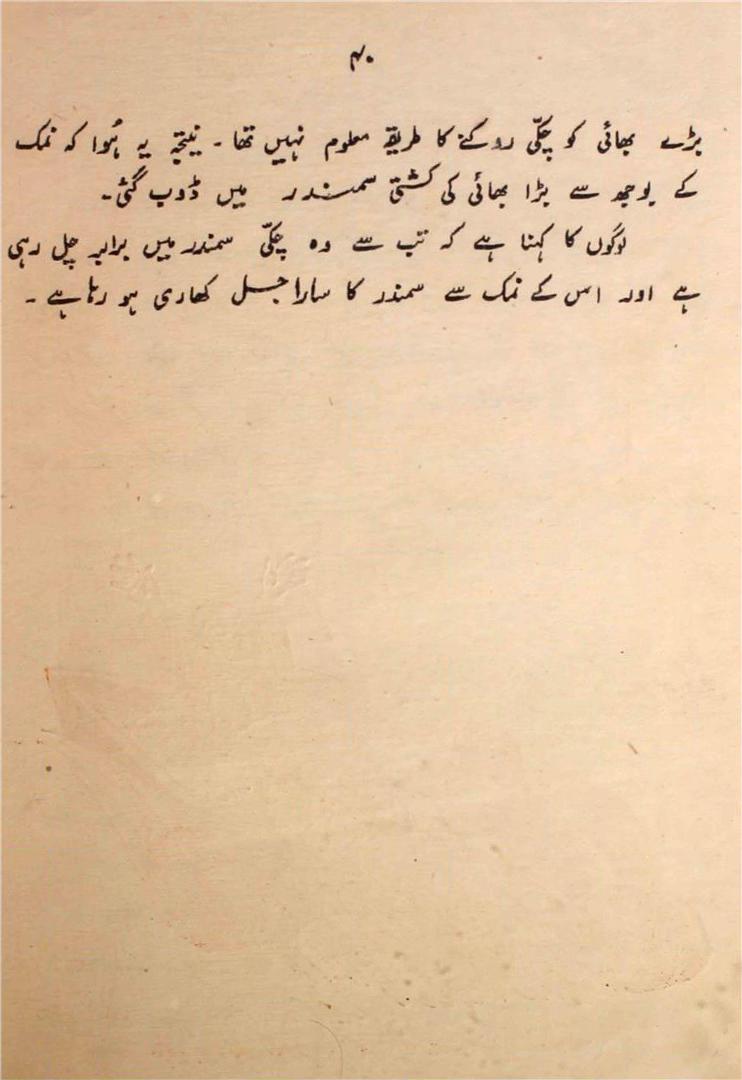 ۴۰
بڑے بھائی کو چکّی روکنے کا طریقہ معلوم نہیں تھا۔ نیتجہ یہ ہُوا کہ نمک
کے بوجھ سے بڑا بھائی کی کشتی سمندر میں ڈوب گئی۔
لوگوں کا کہنا ہے کہ تب سے وہ چکّی سمندر میں برابر چل رہی
ہے اور اس کے نمک سے سمندر کا سارا جل کھاری ہو رہا ہے۔